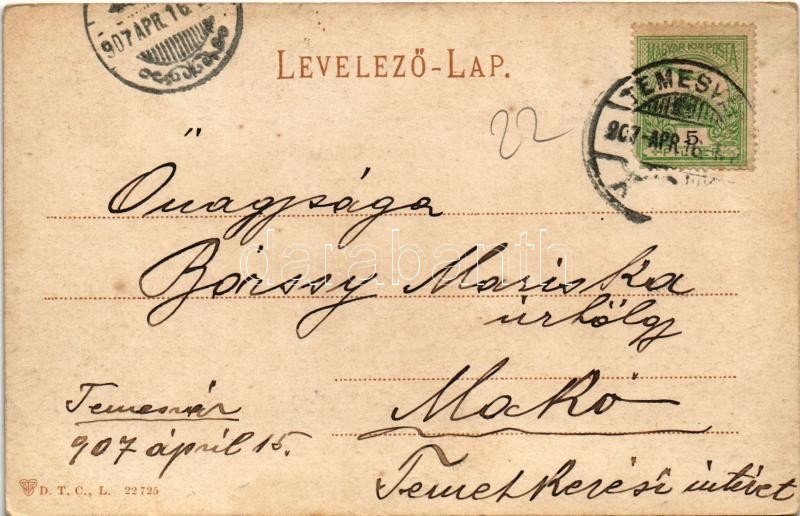 907 APR. 16
LEVELEZŐ-LAP.
MAGYAR KIR. POSTA
TEMESVÁR
907 APR. 16
5
V
22
Őnagysága
Bárssy Mariska
úrhölgy
Makó
Temetkezési intézet
Temesvár
907 ápríl 15.
D. T. C., L. 22725
darabanth